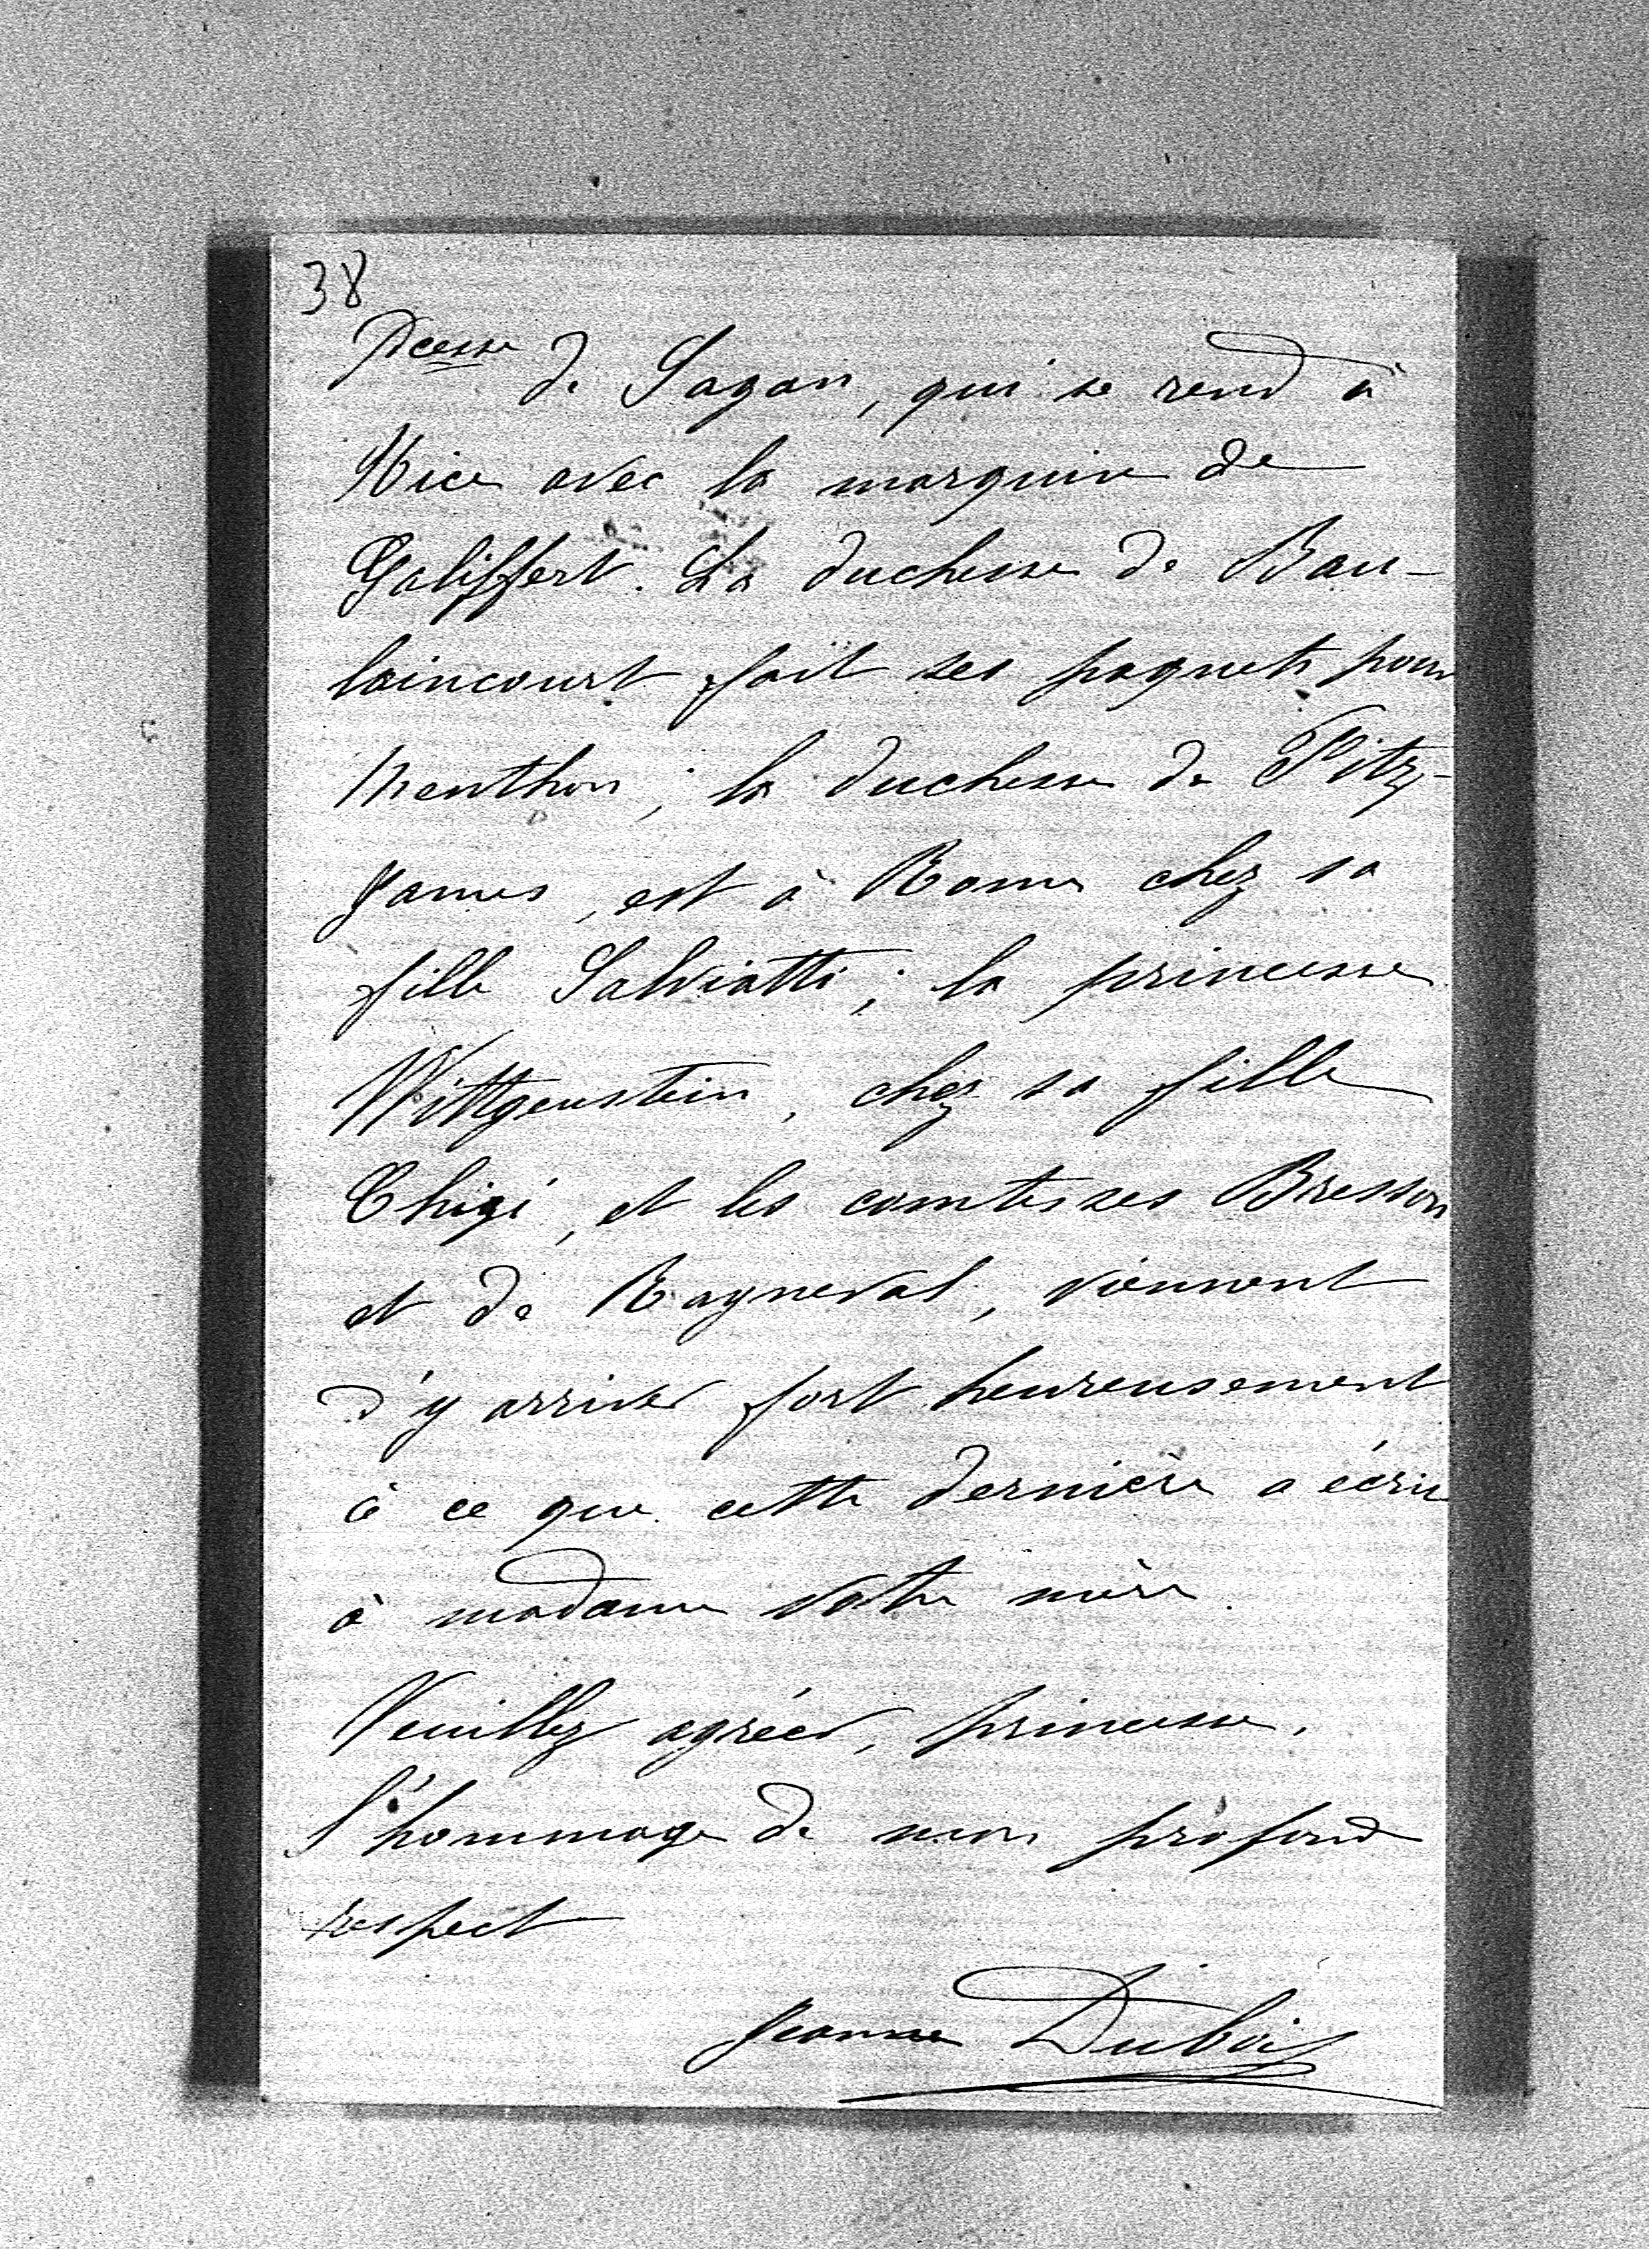 38
Pcesse de Sagan, qui se rend à
Nice avec la marquise de
Galiffert. La duchesse de Bau-
laincourt fait ses paquets pour
Menthon ; la duchesse de Fitz-
James, est à Rome chez sa
fille Salviatti ; la princesse
Wittgenstein, chez sa fille
Chigi, et les comtesses Bresson
et de Rayneval, viennent
d'y arriver fort heureusement
à ce que cette dernière a écrit
à madame votre mère.
Veuillez agréer, princesse,
l'hommage de mon profond
respect
Jeanne Dubois